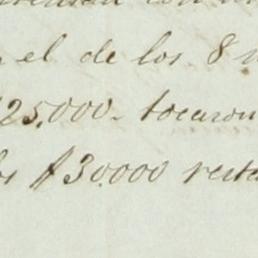 el de los 8
$25.000- tocaron
$30.000 resta